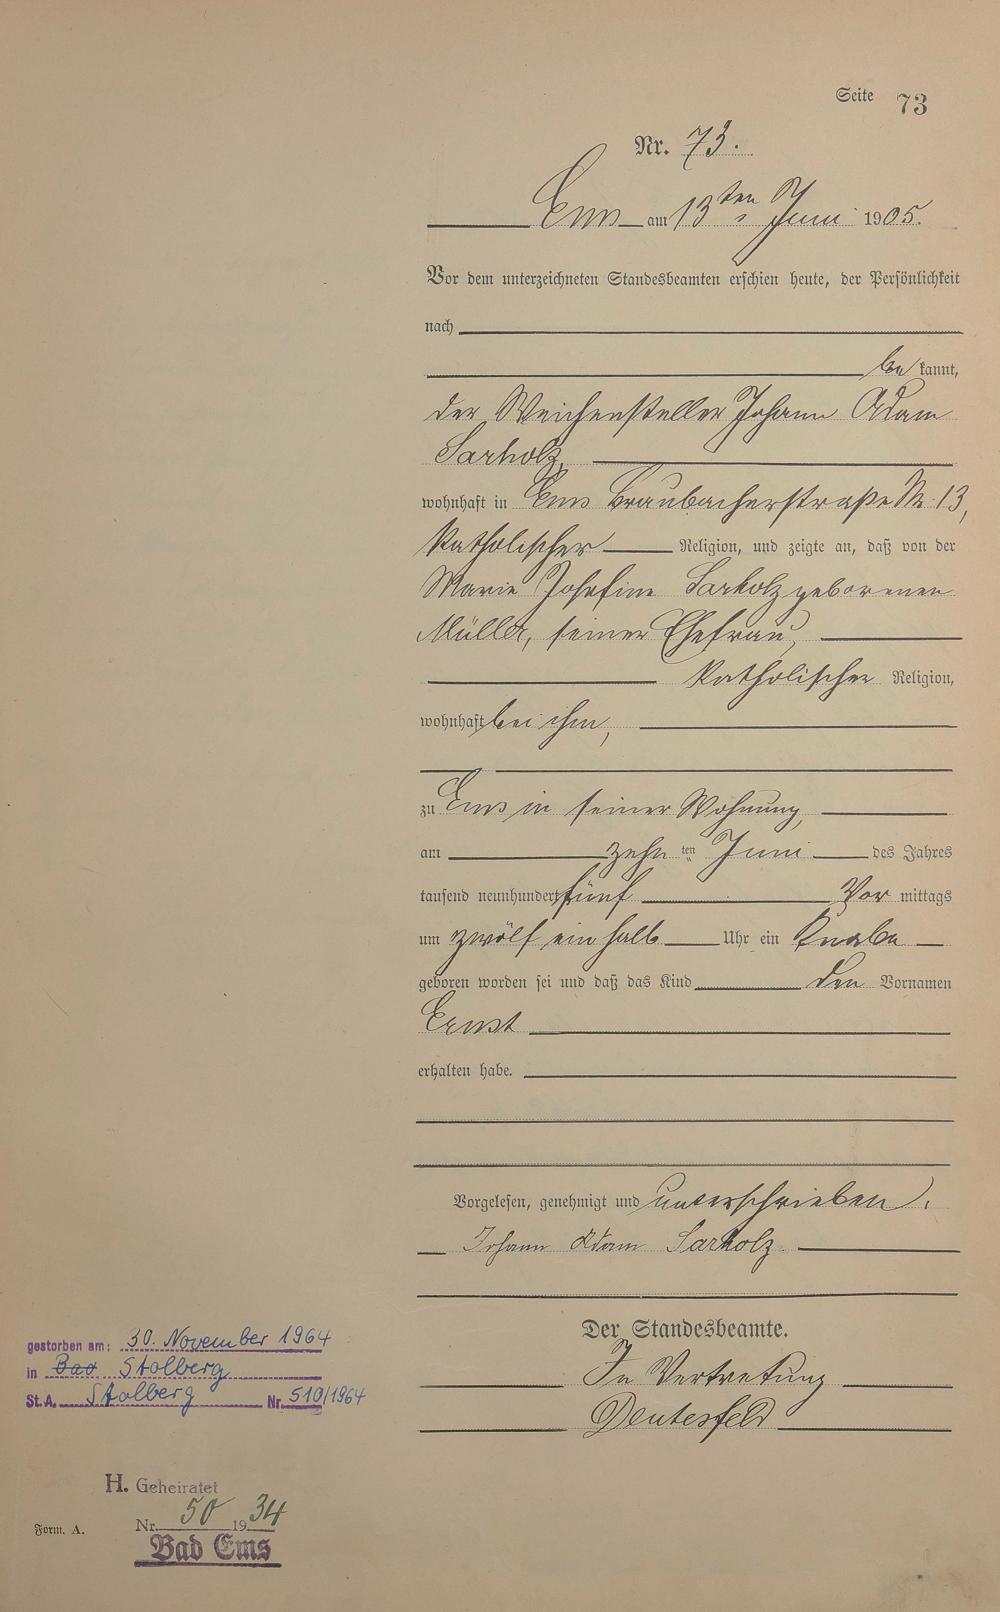 Seite 73
Nr. 73.
Ems am 13ten Juni 1905.
Vor dem unterzeichneten Standesbeamten erschien heute, der Persönlichkeit
nach
be kannt,
der Weichensteller Johann Adam
Sarholz,
wohnhaft in Ems Braubacherstraße No 13,
katholischer Religion, und zeigte an, daß von der
Marie Josefine Sarholz geborenen
Müller, seiner Ehefrau,
katholischer Religion,
wohnhaft bei ihm,
zu Ems in seiner Wohnung,
am zehn ten Juni des Jahres
tausend neunhundert fünf Vor mittags
um zwölf ein halb Uhr ein Knabe
geboren worden sei und daß das Kind den Vornamen
Ernst
erhalten habe.
Vorgelesen, genehmigt und unterschrieben.
Johann Adam Sarholz
Der Standesbeamte.
In Vertretung
Deutesfeld
gestorben am: 30. November 1964
in Bad Stolberg
St.A. Stolberg Nr. 510/1964
H. Geheiratet
Nr. 50 1934
Bad Ems
Form. A.